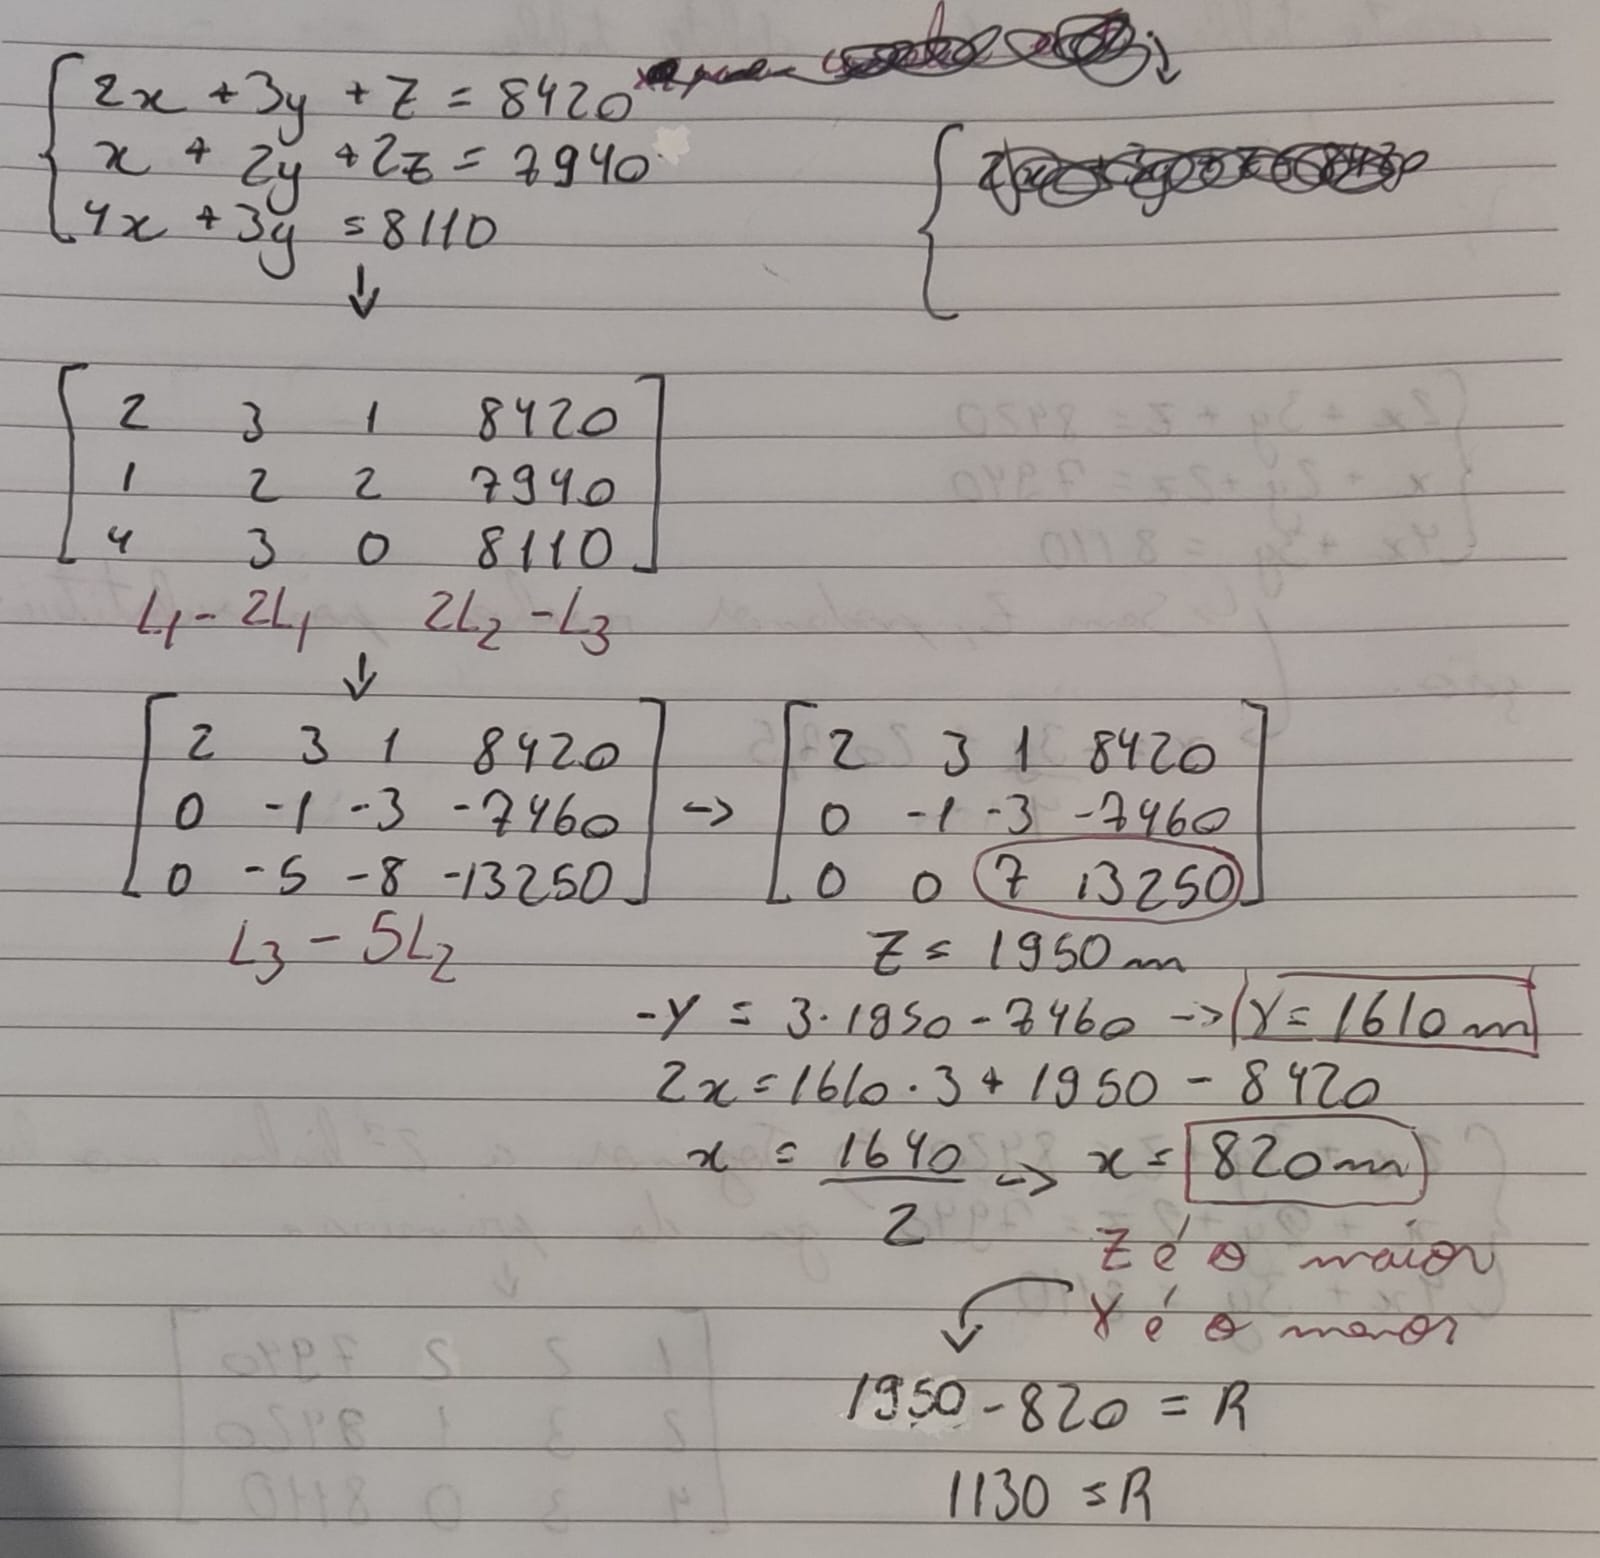 2x + 3y + z = 8420
x + 2y + 2z = 7940
4x + 3y = 8110
↓
2 3 1 8420
1 2 2 7940
4 3 0 8110
L1 - 2L1 2L2 - L3
↓
2 3 1 8420 → 2 3 1 8420
0 -1 -3 -7460 0 -1 -3 -7460
0 -5 -8 -13250 0 0 7 13250
L3 - 5L2
z = 1950m
-y = 3·1950 - 7460 -> y = 1610m
2x = 1610·3 + 1950 - 8420
x = 1640/2 -> x = 820m
z é o maior
x é o menor
1950 - 820 = R
1130 = R